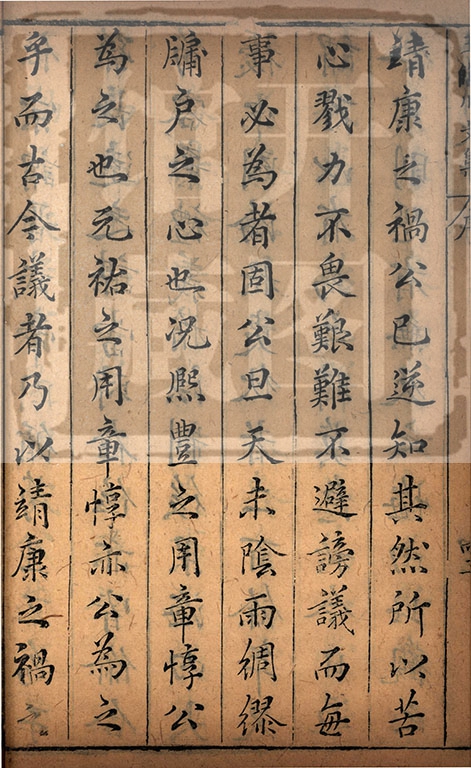 靖康之禍公已逆知其然所以苦
心戮力不畏艱難不避謗議而毎
事必為者固公旦天未陰雨綢繆
牖戶之心也况熈豐之用章惇公
為之也元祐之用章惇亦公為之
乎而古今議者乃以靖康之禍